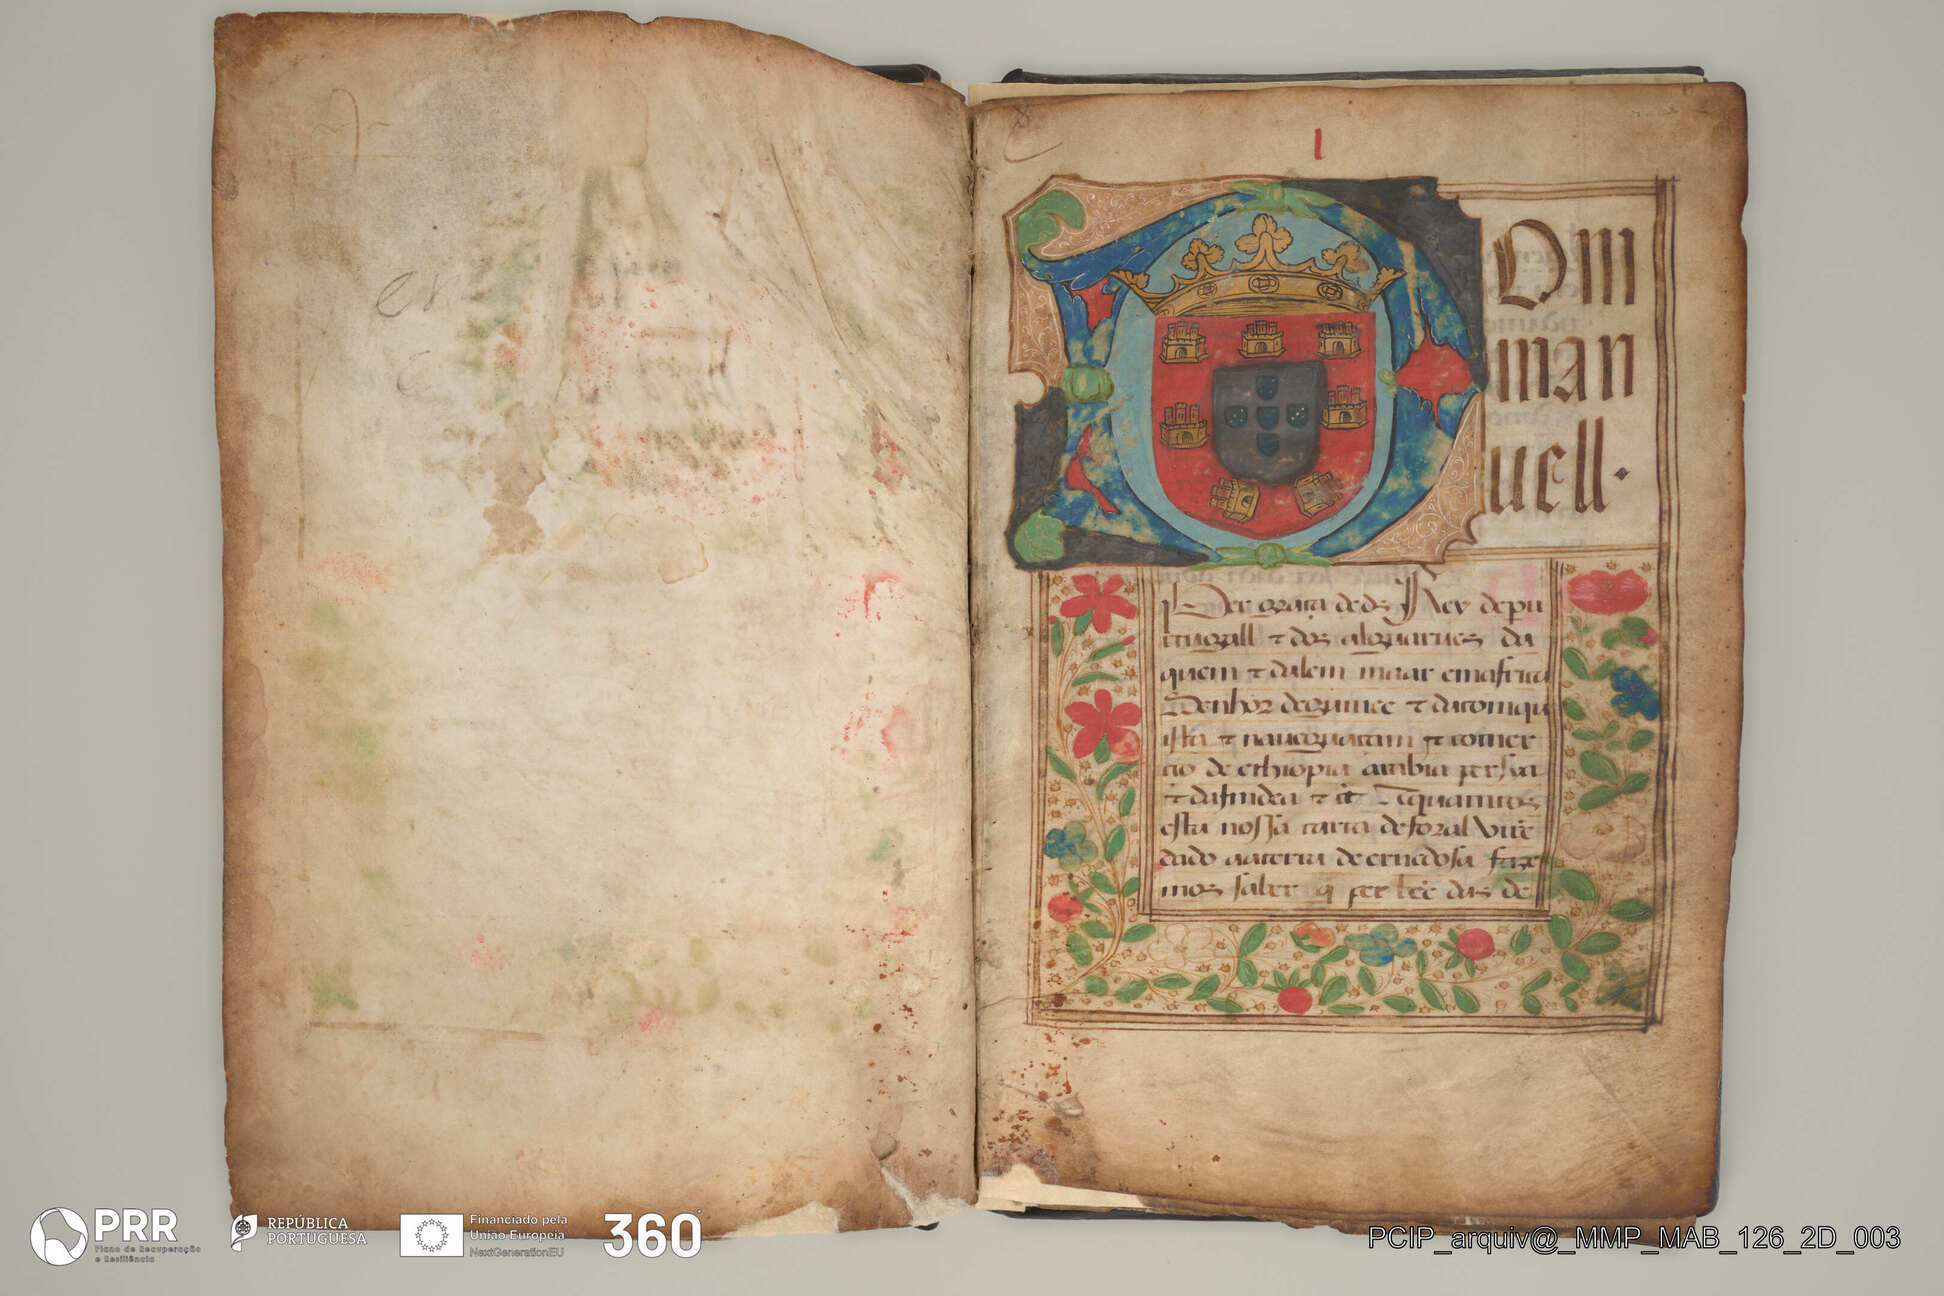 I
Dom
man
uell.
Per graça de ds Rey depu
rtugall τ dos alguarues da
quem τ dalem maar emafrica
Senhor deguinee τ daconqu
ista τ naueguaçam τ comer
cio de ethiopia arabia persia
τ dajndea τ cͭ A quamtos
esta nossa carta de foral virẽ
dado aaterra de eruedosa faze
mos saber q̃ per bẽe das de
PRR
Plano de Recuperação
e Resiliência
REPÚBLICA
PORTUGUESA
Financiado pela
União Europeia
NextGenerationEU
360°
PCIP_arquiv@_MMP_MAB_126_2D_003